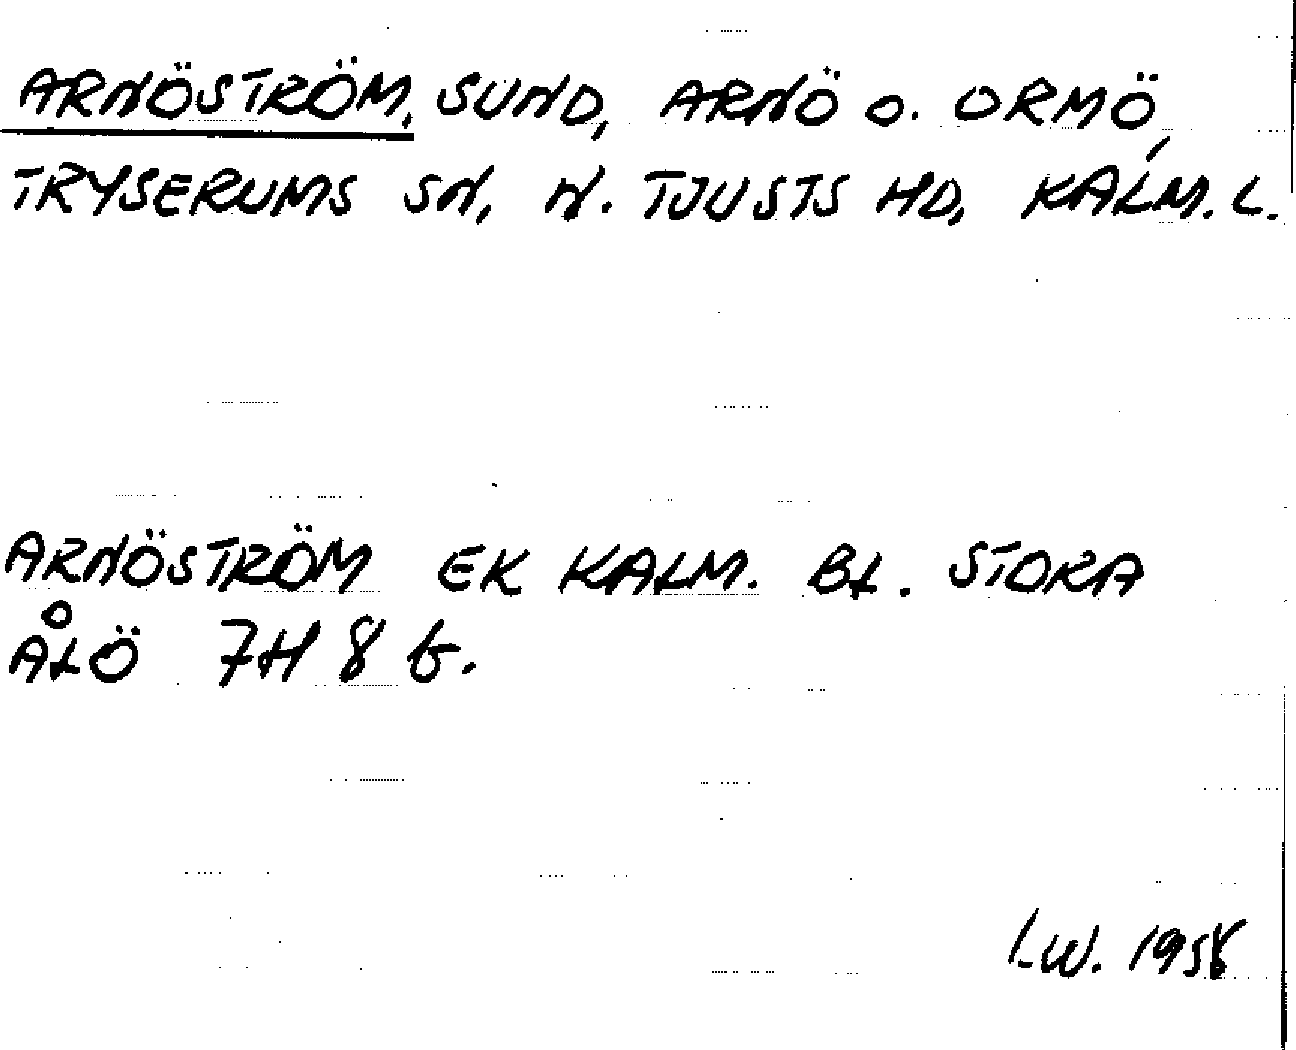 ARNÖSTRÖM, SUND, ARNÖ O. ORMÖ,
TRYSERUMS SN, N. TJUSTS HD, KALM. L.
ARNÖSTRÖM EK KALM. BL. STORA
ÅLÖ 7H 8 b.
I.W. 1958